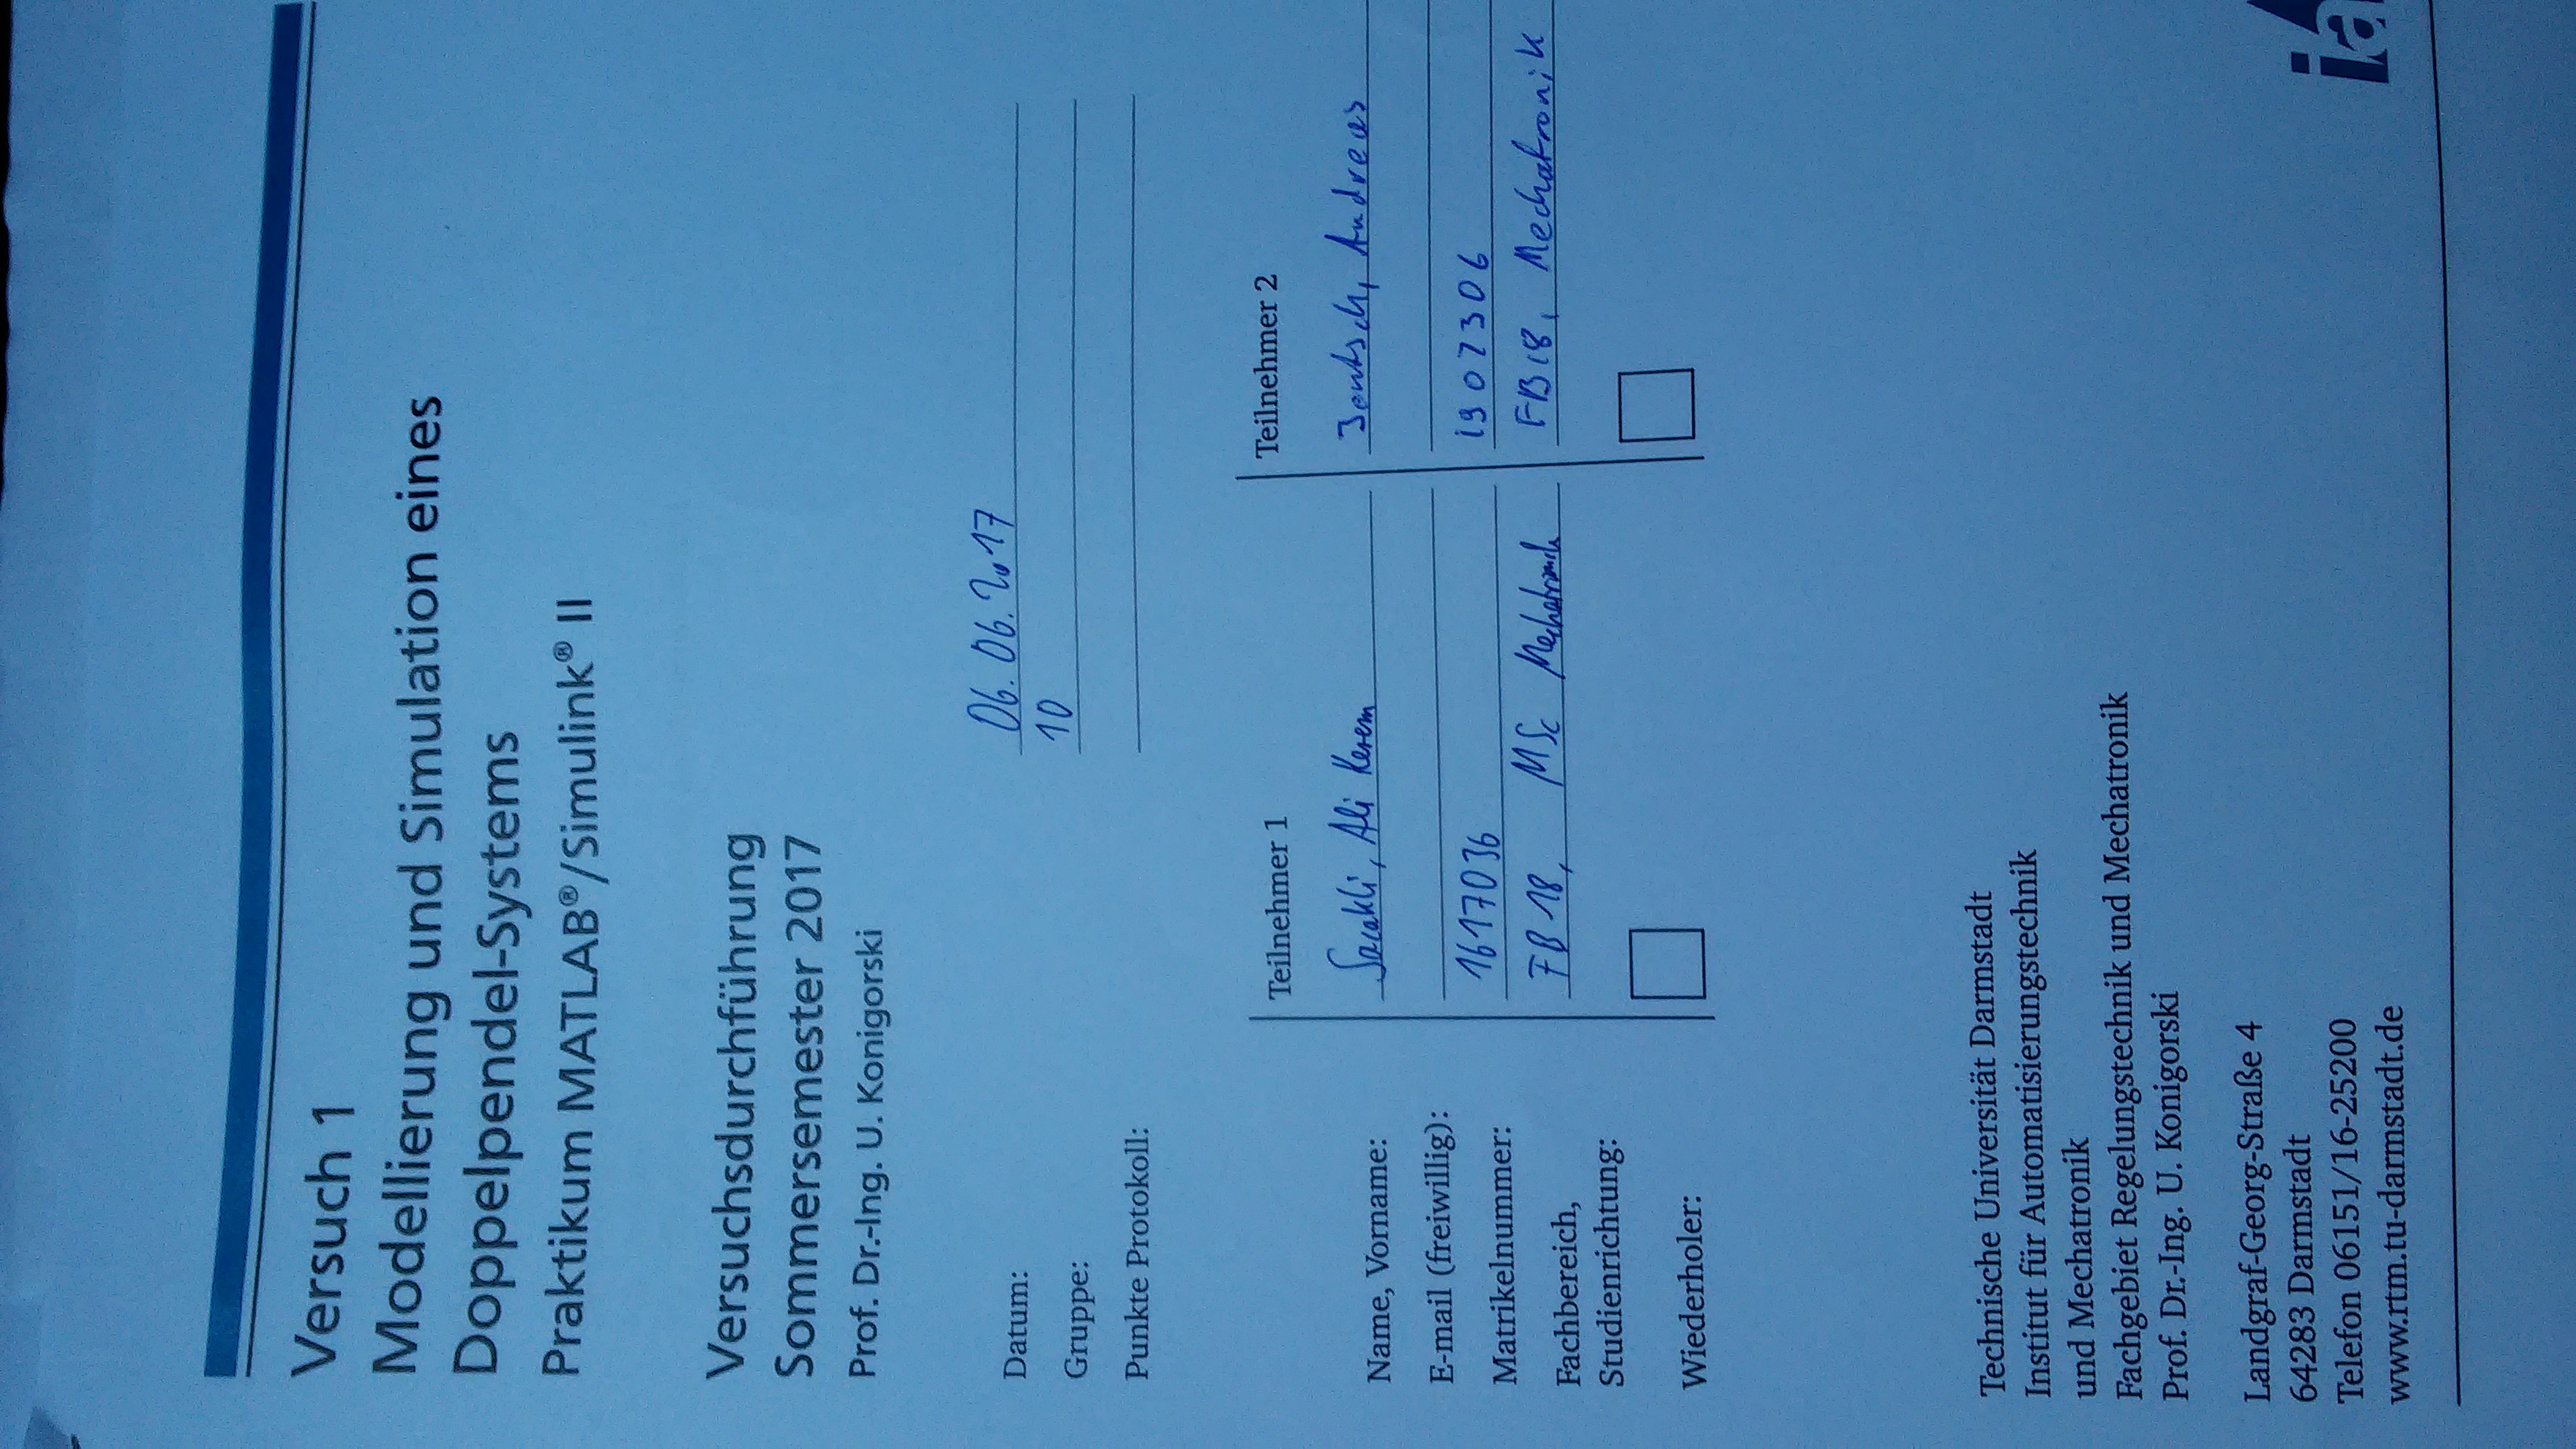 Versuch 1
Modellierung und Simulation eines
Doppelpendel-Systems
Praktikum MATLAB®/Simulink® II
Versuchsdurchführung
Sommersemester 2017
Prof. Dr.-Ing. U. Konigorski
Datum: 06.06.2017
Gruppe: 10
Punkte Protokoll:
Teilnehmer 1 Teilnehmer 2
Name, Vorname: Sacakli, Ali Kerem Andreas
E-mail (freiwillig):
Matrikelnummer: 1617036 1907306
Fachbereich, FB 18, MSc Mechatronik FB18, Mechatronik
Studienrichtung:
Wiederholer:
Technische Universität Darmstadt
Institut für Automatisierungstechnik
und Mechatronik
Fachgebiet Regelungstechnik und Mechatronik
Prof. Dr.-Ing. U. Konigorski
Landgraf-Georg-Straße 4
64283 Darmstadt
Telefon 06151/16-25200
www.rtm.tu-darmstadt.de